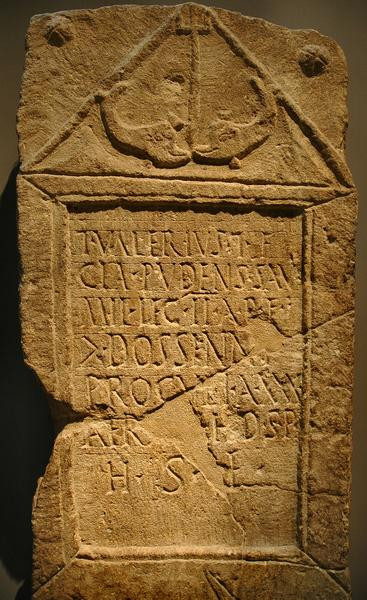 T·VALERIVS·T·F
CLA·PVDENS·SAV
MIL·LEG·II·A·P·F·
>·DOSSENNI
PROCV
AER D·SP
H·S·E